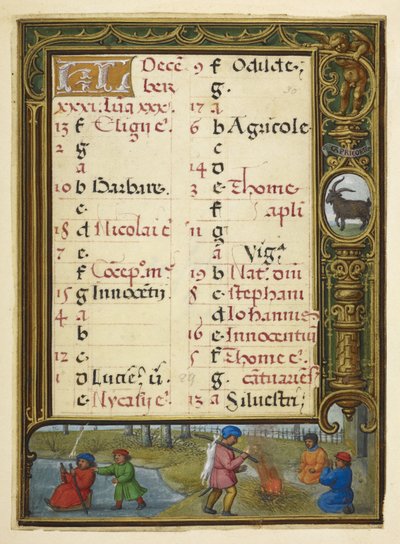 KL Decē
ber
xxxi. lūa xxx.
13 f Eligii e.
2 g
a
10 b Barbare.
c
18 d Nicolai e.
7 e
f Cōcep. m e
15 g Innocētii
4 a
b
12 c
1 d Lucie. v.
e Nycasii e.
9 f Odilde.
g
17 a
6 b Agricole
c
14 d
3 e Thome
f apli
11 g
a Vig.
19 b Nat. dm
8 c Stephani
d Iohannis
16 e Innocentiū
5 f Thome e.
g cātuariēs
13 a Silvestri
CAPRICORN
30
29